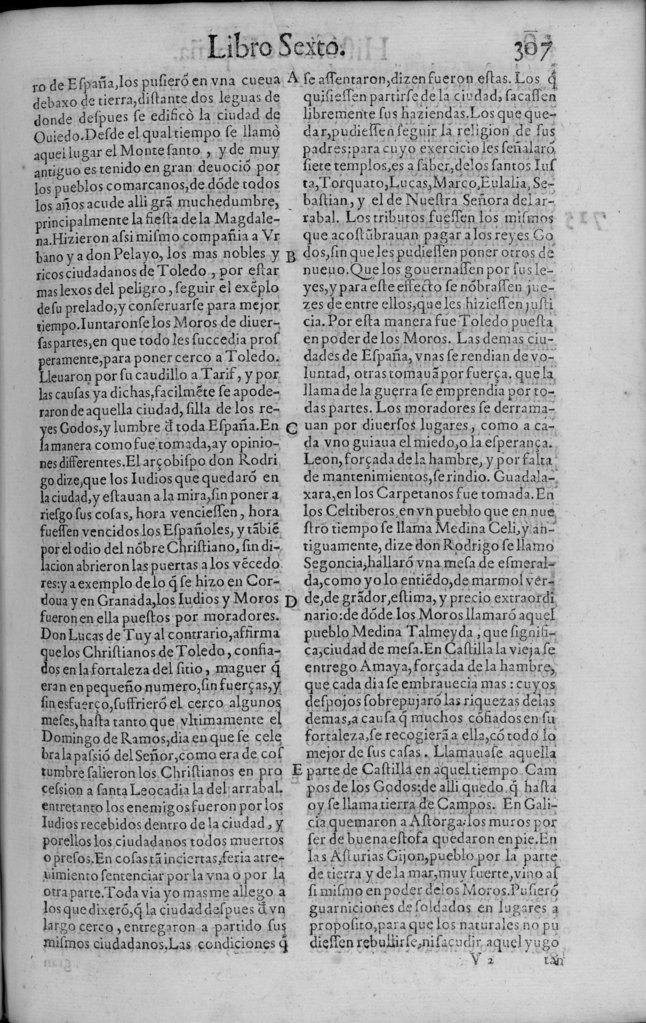 Libro Sexto. 307
ro de España,los pusierõ en vna cueua
debaxo de tierra,distante dos leguas de
donde despues se edificò la ciudad de
Ouiedo.Desde el qual tiempo se llamò
aquel lugar el Monte santo , y de muy
antiguo es tenido en gran deuociõ por
los pueblos comarcanos,de dõde todos
los años acude alli grã muchedumbre,
principalmente la fiesta de la Magdale-
na.Hizieron assi mismo compañia a Vr
bano y a don Pelayo, los mas nobles y
ricos ciudadanos de Toledo , por estar
mas lexos del peligro, seguir el exẽplo
de su prelado,y conseruarse para mejor
tiempo.Iuntaronse los Moros de diuer-
sas partes,en que todo les succedia pros
peramente,para poner cerco a Toledo.
Lleuaron por su caudillo a Tarif, y por
las causas ya dichas,facilmẽte se apode-
raron de aquella ciudad, silla de los re-
yes Godos,y lumbre đ toda España.En
la manera como fue tomada,ay opinio-
nes differentes.El arçobispo don Rodri
go dize,que los Iudios que quedarõ en
la ciudad,y estauan a la mira,sin poner a
riesgo sus cosas, hora venciessen , hora
fuessen vencidos los Españoles, y tãbiẽ
por el odio del nõbre Christiano, sin di-
lacion abrieron las puertas a los vẽcedo
res:y a exemplo de lo q̃ se hizo en Cor-
doua y en Granada,los Iudios y Moros
fueron en ella puestos por moradores.
Don Lucas de Tuy al contrario,affirma
que los Christianos de Toledo , confia-
dos en la fortaleza del sitio, maguer q̃
eran en pequeño numero,sin fuerças,y
sin esfuerço,suffrierõ el cerco algunos
meses,hasta tanto que vltimamente el
Domingo de Ramos,dia en que se cele
bra la passiõ del Señor,como era de cos
tumbre salieron los Christianos en pro
cession a santa Leocadia la del arrabal.
entretanto los enemigos fueron por los
Iudios recebidos dentro de la ciudad, y
por ellos los ciudadanos todos muertos
o presos.En cosas tã inciertas,seria atre-
uimiento sentenciar por la vna o por la
otra parte.Toda via yo mas me allego a
los que dixerõ,q̃ la ciudad despues đ vn
largo cerco, entregaron a partido sus
mismos ciudadanos.Las condiciones q̃
A
B
C
D
E
se assentaron,dizen fueron estas. Los q̃
quisiessen partirse de la ciudad, sacassen
libremente sus haziendas.Los que que-
dar,pudiessen seguir la religion de sus
padres:para cuyo exercicio les señalarõ
siete templos,es a saber,de los santos Ius
ta,Torquato,Lucas,Marco,Eulalia,Se-
bastian, y el de Nuestra Señora del ar-
rabal. Los tributos fuessen los mismos
que acostũbrauan pagar a los reyes Go
dos,sin que les pudiessen poner otros de
nueuo.Que los gouernassen por sus le-
yes,y para este effecto se nõbrassen jue-
zes de entre ellos,que les hiziessen justi
cia. Por esta manera fue Toledo puesta
en poder de los Moros. Las demas ciu-
dades de España, vnas se rendian de vo-
luntad, otras tomauã por fuerça. que la
llama de la guerra se emprendia por to-
das partes. Los moradores se derrama-
uan por diuersos lugares, como a ca-
da vno guiaua el miedo,o la esperança.
Leon, forçada de la hambre, y por falta
de mantenimientos,se rindio. Guadala-
xara,en los Carpetanos fue tomada.En
los Celtiberos en vn pueblo que en nue
stro tiempo se llama Medina Celi,y an-
tiguamente, dize don Rodrigo se llamo
Segoncia,hallarõ vna mesa de esmeral-
da,como yo lo entiẽdo,de marmol ver-
de,de grãdor,estima, y precio extraordi
nario:de dõde los Moros llamarõ aquel
pueblo Medina Talmeyda , que signifi-
ca,ciudad de mesa.En Castilla la vieja se
entrego Amaya, forçada de la hambre,
que cada dia se embrauecia mas : cuyos
despojos sobrepujarõ las riquezas delas
demas,a causa q̃ muchos cõfiados en su
fortaleza,se recogierã a ella,cõ todo lo
mejor de sus casas. Llamauase aquella
parte de Castilla en aquel tiempo Cam
pos de los Godos:de alli quedo q̃ hasta
oy se llama tierra de Campos. En Gali-
cia quemaron a Astorga:los muros por
ser de buena estofa quedaron en pie.En
las Asturias Gijon,pueblo por la parte
de tierra y de la mar,muy fuerte,vino as
si mismo en poder de los Moros.Pusierõ
guarniciones de soldados en lugares a
proposito,para que los naturales no pu
diessen rebullirse,ni sacudir aquel yugo
V 2 tan